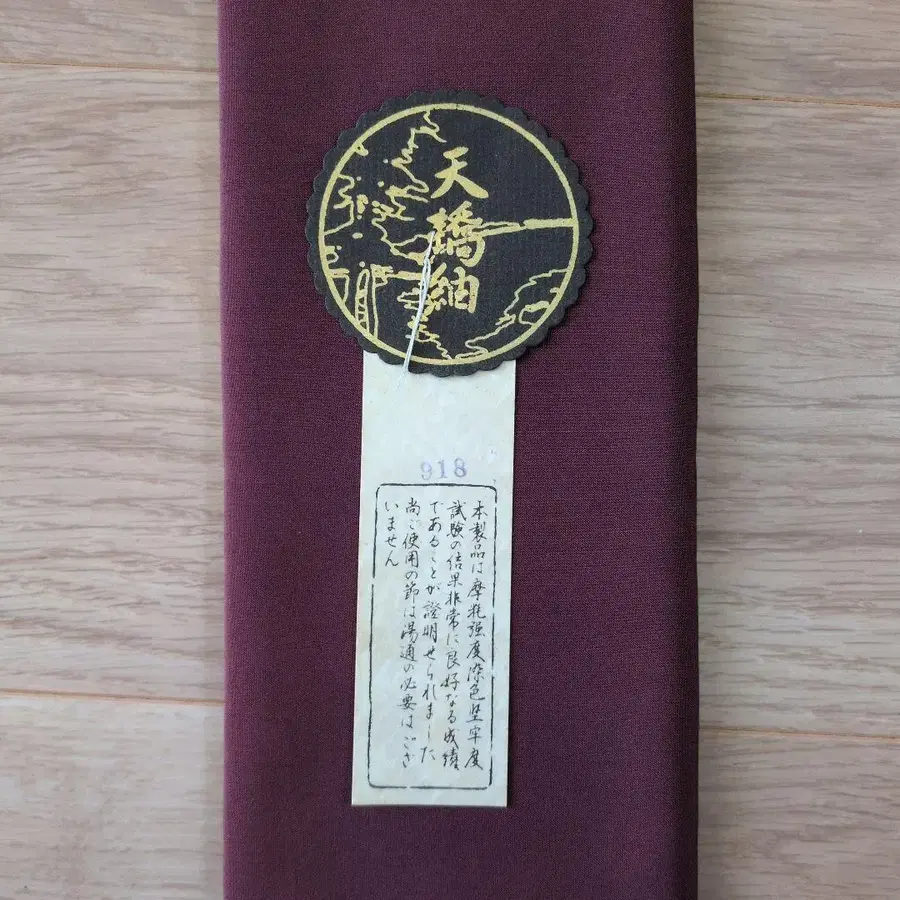 天橋紬
918
本製品は摩耗強度染色堅牢度
試験の結果非常に良好なる成績
であることが證明せられました
尚ご使用の節は湯通の必要はござ
いません